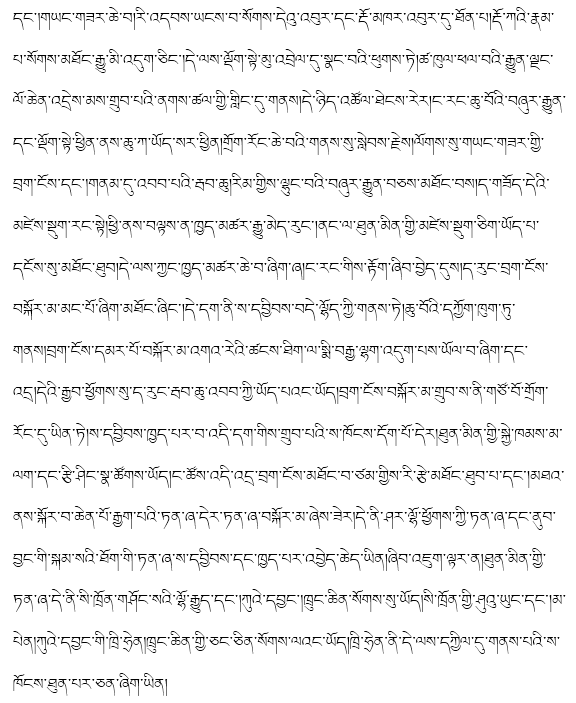 དང་།གཡང་གཟར་ཆེ་བ།རི་འདབས་ཡངས་བ་སོགས་དེའུ་འབུར་དང་རྡོ་མཁར་འབུར་དུ་ཐོན་པ།རྡོ་ཀའི་རྣམ་
པ་སོགས་མཐོང་རྒྱུ་མི་འདུག་ཅིང་།དེ་ལས་ལྡོག་སྟེ་མུ་འབྲེལ་དུ་སྣང་བའི་ཕུགས་ཏེ།ཚ་ཁུལ་ཕལ་བའི་རྒྱུན་ལྗང་
ལོ་ཆེན་འདྲེས་མས་གྲུབ་པའི་ནགས་ཚལ་གྱི་གླིང་དུ་གནས།དེ་ཉིད་འཚོལ་ཐེངས་རེར།ང་རང་ཆུ་བོའི་བཞུར་རྒྱུན་
དང་ལྡོག་སྟེ་ཕྱིན་ནས་ཆུ་ཀ་ཡོད་སར་ཕྱིན།གྲོག་རོང་ཆེ་བའི་གནས་སུ་སླེབས་རྗེས།ལོགས་སུ་གཡང་གཟར་གྱི་
བྲག་ངོས་དང་།གནམ་དུ་འབབ་པའི་རྦབ་ཆུ།རིམ་གྱིས་ལྷུང་བའི་བཞུར་རྒྱུན་བཅས་མཐོང་བས།ད་གཟོད་དེའི་
མཛེས་སྡུག་རང་སྟེ།ཕྱི་ནས་བལྟས་ན་ཁྱད་མཚར་རྒྱུ་མེད་རུང་།ནང་ལ་ཐུན་མིན་གྱི་མཛེས་སྡུག་ཅིག་ཡོད་པ་
དངོས་སུ་མཐོང་ཐུབ།དེ་ལས་ཀྱང་ཁྱད་མཚར་ཆེ་བ་ཞིག་ཞ།ང་རང་གིས་རྟོག་ཞིབ་བྱེད་དུས།ད་རུང་བྲག་ངོས་
བསྐོར་མ་མང་པོ་ཞིག་མཐོང་ཞིང་།དེ་དག་ནི་ས་དབྱིབས་བདེ་ལྷོད་ཀྱི་གནས་ཏེ།ཆུ་བོའི་དཀྱོག་ཁུག་ཏུ་
གནས།བྲག་ངོས་དམར་པོ་བསྐོར་མ་འགའ་རེའི་ཚངས་ཐིག་ལ་སྨི་བརྒྱ་ལྷག་འདུག་པས་ཡོལ་བ་ཞིག་དང་
འདྲ།དེའི་རྒྱབ་ཕྱོགས་སུ་ད་རུང་རྦབ་ཆུ་འབབ་ཀྱི་ཡོད་པའང་ཡོད།བྲག་ངོས་བསྐོར་མ་གྲུབ་ས་ནི་གཙོ་བོ་གྲོག་
རོང་དུ་ཡིན་ཏེ།ས་དབྱིབས་ཁྱད་པར་བ་འདི་དག་གིས་གྲུབ་པའི་ས་ཁོངས་དོག་པོ་དེར།ཐུན་མིན་གྱི་སྐྱེ་ཁམས་མ་
ལག་དང་རྩི་ཤིང་སྣ་ཚོགས་ཡོད།ང་ཚོས་འདི་འདྲ་བྲག་ངོས་མཐོང་བ་ཙམ་གྱིས་རི་རྩེ་མཐོང་ཐུབ་པ་དང་།མཐའ་
ནས་སྐོར་བ་ཆེན་པོ་རྒྱག་པའི་ཏན་ཞ་དེར་ཏན་ཞ་བསྐོར་མ་ཞེས་ཟེར།དེ་ནི་ཤར་ལྷོ་ཕྱོགས་ཀྱི་ཏན་ཞ་དང་ནུབ་
བྱང་གི་སྐམ་སའི་ཐོག་གི་ཏན་ཞ་ས་དབྱིབས་དང་ཁྱད་པར་འབྱེད་ཆེད་ཡིན།ཞིབ་འཇུག་ལྟར་ན།ཐུན་མིན་གྱི་
ཏན་ཞ་དེ་ནི་སི་ཁྲོན་གཤོང་སའི་ལྷོ་རྒྱུད་དང་།ཀུའེ་དབྱང་།ཁྲུང་ཆིན་སོགས་སུ་ཡོད།སི་ཁྲོན་གྱི་ཤུའུ་ཡུང་དང་།མ་
པེན།ཀུའེ་དབྱང་གི་ཁྲི་ཧྲེན།ཁྲུང་ཆིན་གྱི་ཅང་ཅིན་སོགས་ལའང་ཡོད།ཁྲི་ཧྲེན་ནི་དེ་ལས་དཀྱིལ་དུ་གནས་པའི་ས་
ཁོངས་ཐུན་པར་ཅན་ཞིག་ཡིན།